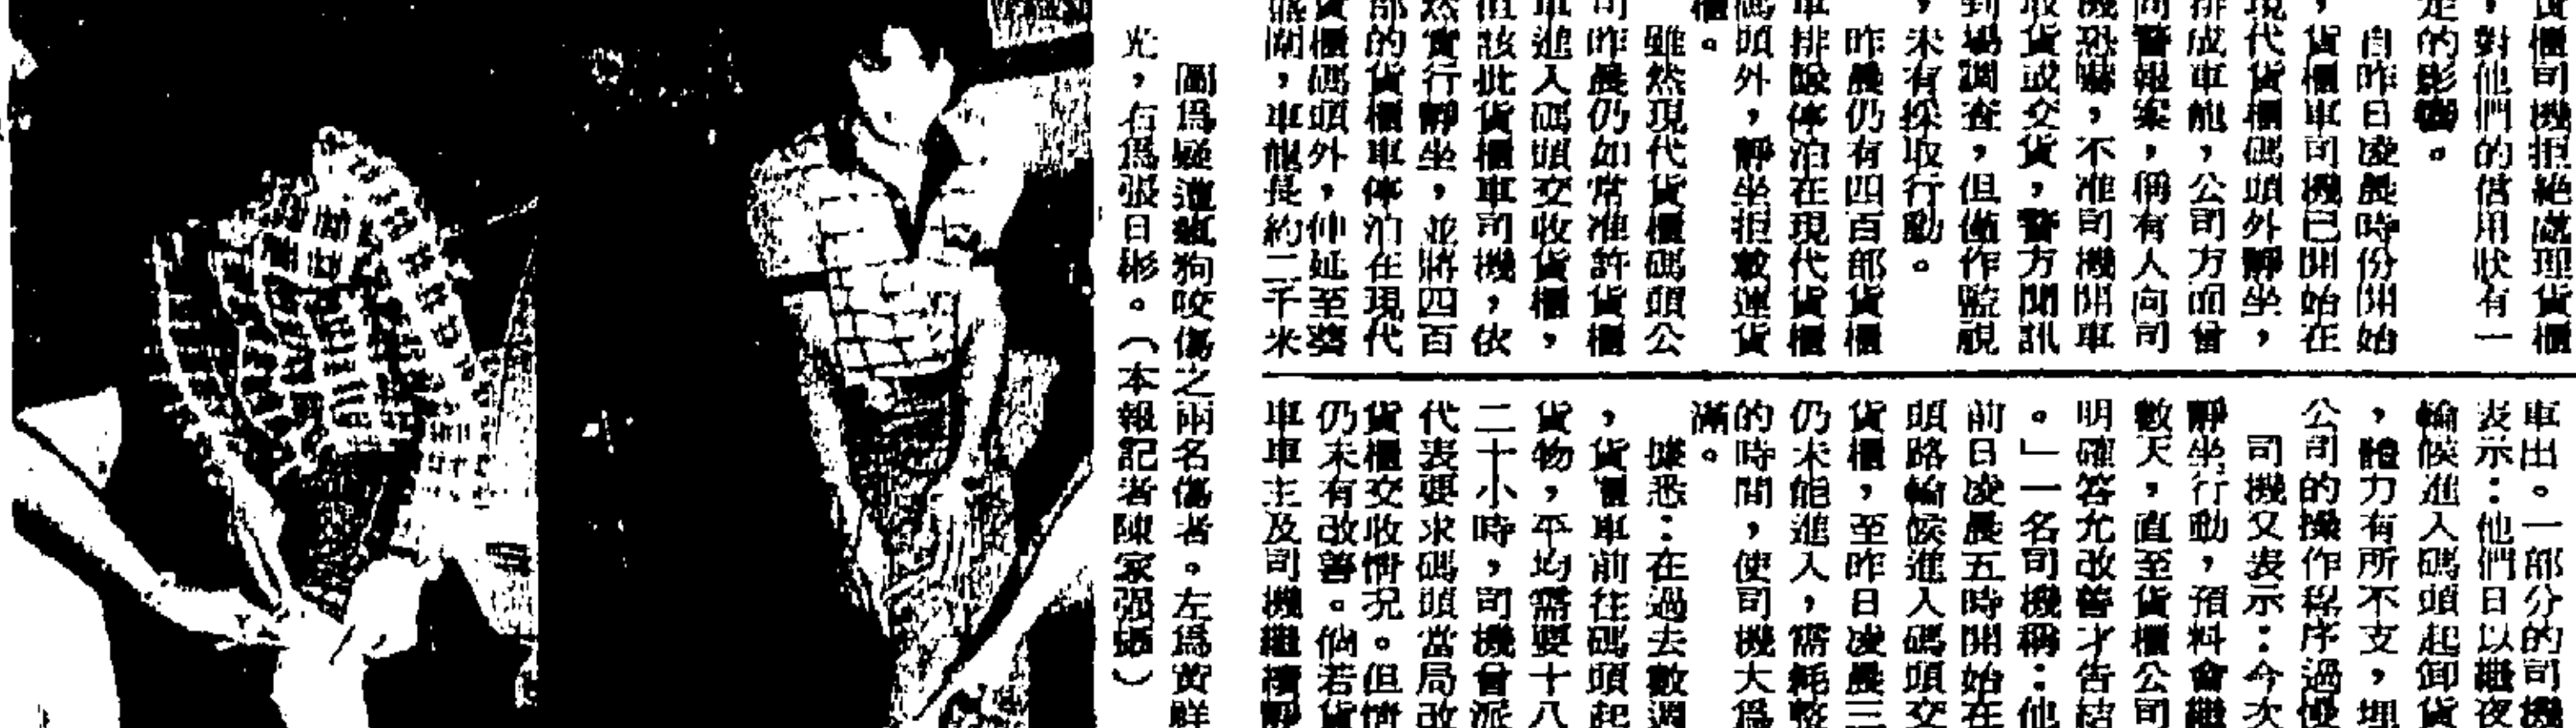 貨櫃司機拒絕處理貨櫃
，對他們的信用狀有一
定的影響。
自昨日凌晨時份開始
，貨櫃車司機已開始在
現代貨櫃碼頭外靜坐，
排成車龍，公司方面曾
向警報案，稱有人向司
機恐嚇，不准司機開車
取貨或交貨，警方聞訊
到場調查，但僅作監視
，未有採取行動。
昨晨仍有四百部貨櫃
車排隊停泊在現代貨櫃
碼頭外，靜坐拒載運貨
櫃。
雖然現代貨櫃碼頭公
司昨晨仍如常准許貨櫃
車進入碼頭交收貨櫃，
但該批貨櫃車司機，依
然實行靜坐，並將四百
部的貨櫃車停泊在現代
貨櫃碼頭外，伸延至葵
涌，車龍長約二千米
車出。一部分的司機
表示：他們日以繼夜
輪候進入碼頭起卸貨
，體力有所不支，埋
公司的操作程序過慢
司機又表示：今次
靜坐行動，預料會繼
數天，直至貨櫃公司
明確答允改善才告結
。」一名司機稱：他
前日凌晨五時開始在
頭路輪候進入碼頭交
貨櫃，至昨日凌晨三
仍未能進入，需耗整
的時間，使司機大為
滿。
據悉：在過去數週
，貨櫃車前往碼頭起
貨物，平均需要十八
二十小時，司機曾派
代表要求碼頭當局改
貨櫃交收情況。但情
仍未有改善。倘若貨
車車主及司機繼續靜
圖爲疑遭瘋狗咬傷之兩名傷者。左爲黃鮮
光，右爲張日彬。（本報記者陳家强攝）